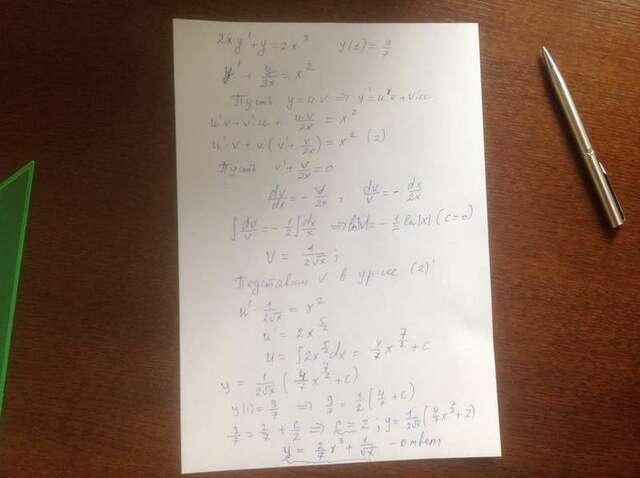 2xy' + y = 2x³ y(1) = 9/7
y' + y/2x = x²
Пусть y = u·v ⇒ y' = u'v + v'u
u'v + v'u + u·v/2x = x²
u'·v + u(v' + v/2x) = x² (2)
Пусть v' + v/2x = 0
dv/dx = -v/2x ; dv/v = -dx/2x
∫dv/v = -1/2 ∫dx/x ⇒ ln|v| = -1/2 ln|x| (c=0)
V = 1/2√x ;
Подставим v в ур-ие (2)
u'·1/2√x = x²
u' = 2x^5/2
u = ∫2x^5/2 dx = 4/7 x^7/2 + C
y = 1/2√x (4/7 x^7/2 + C)
y(1) = 9/7 ⇒ 9/7 = 1/2 (4/7 + C)
9/7 = 2/7 + C/2 ⇒ C = 2 ; y = 1/2√x (4/7 x^7/2 + 2)
y = 2/7 x³ + 1/√x - ответ